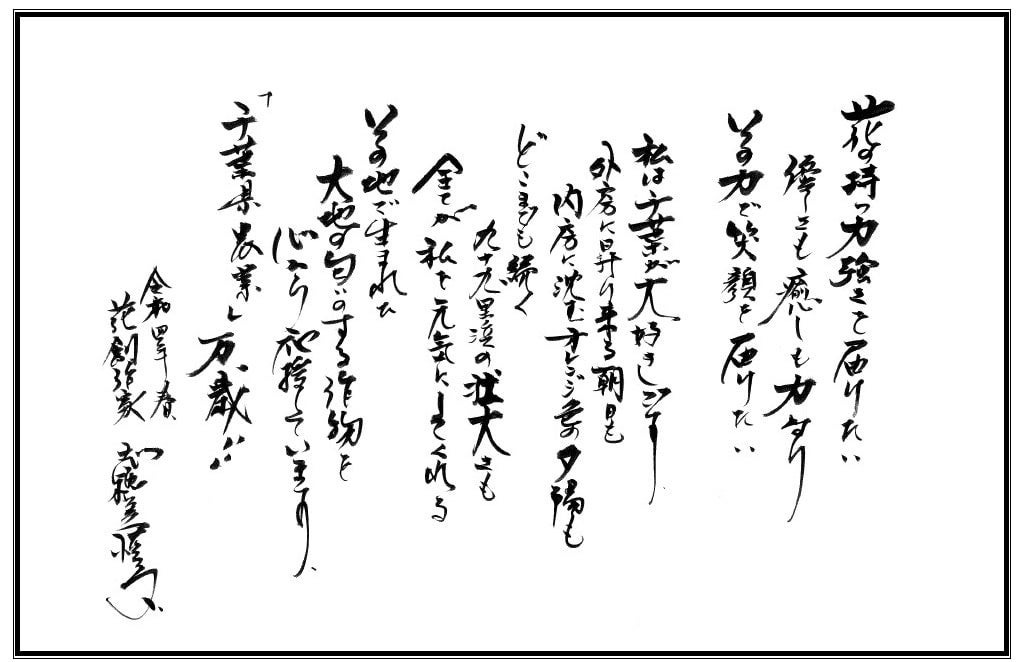 花の持つ力強さを届けたい
優しさも癒しも力なり
その力で笑顔を届けたい
私は千葉が大好きです
外房に昇り来る朝日も
内房に沈むオレンジ色の夕陽も
どこまでも続く
九十九里浜の壮大さも
全てが私を元気にしてくれる
その地で生まれた
大地の匂いのする作物を
心から応援しています、
「千葉県農業」万歳!!
令和四年 春
花創作家